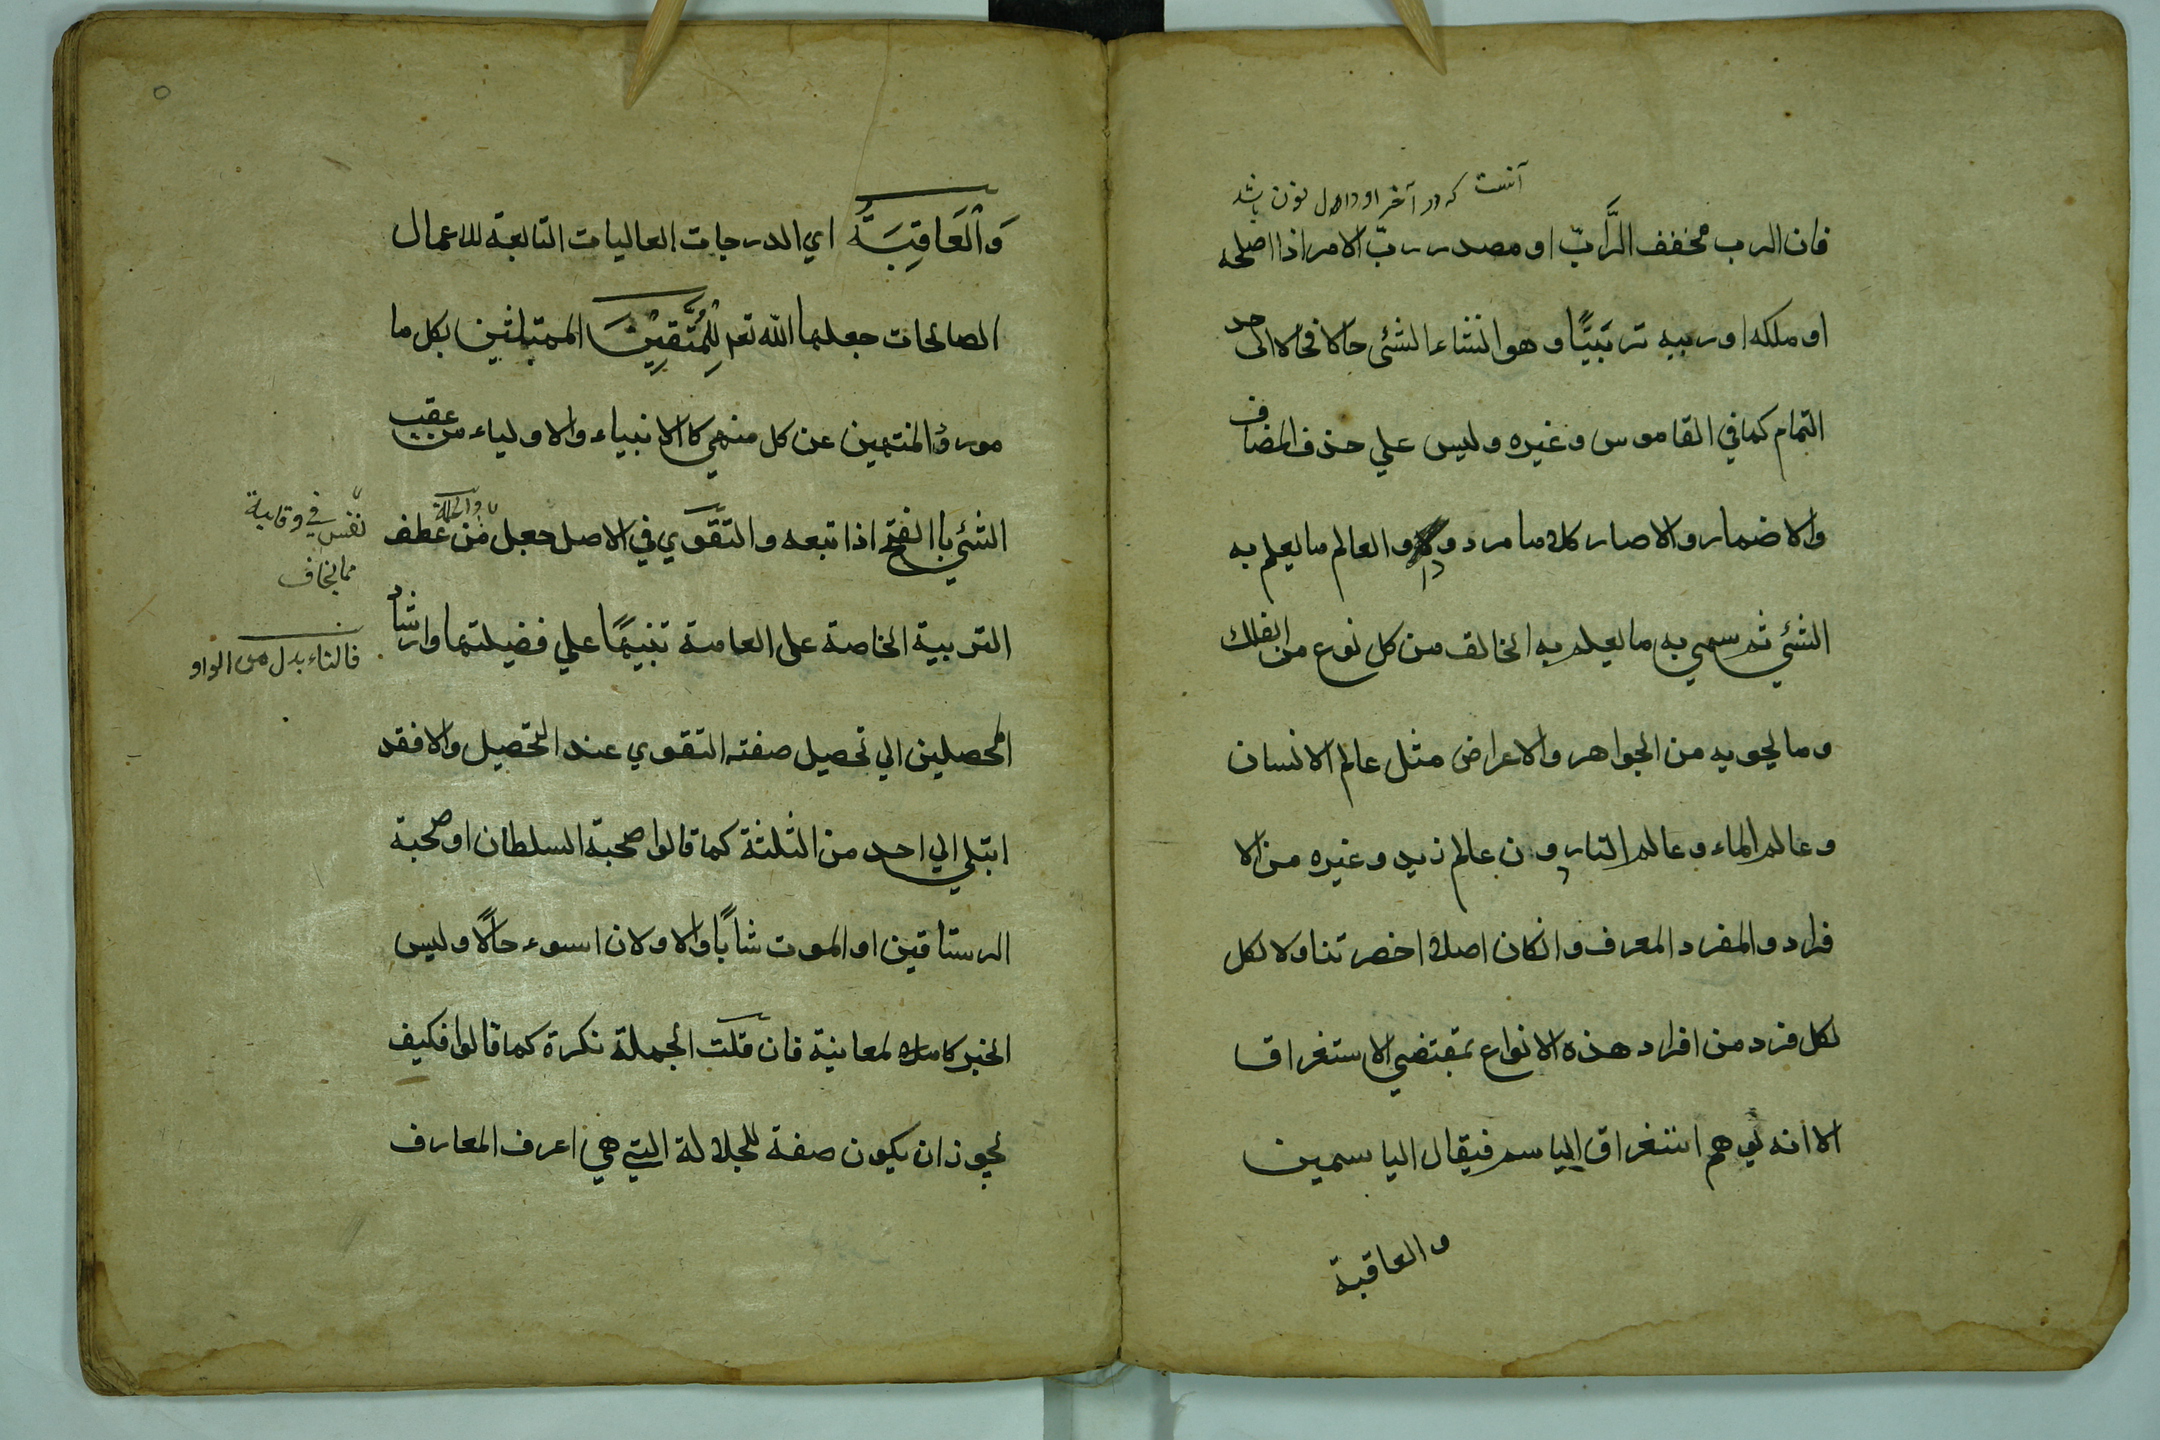 آنست که در آخر او دال نون باشد
فان الرب مخفف الرَّابّ او مصدر ربّ الامر اذا اصلحه
او ملكه او ربيه تربَيًّا و هو انشاء الشئ حالا فحالا الى حد
التمام كما في القاموس و غيره و ليس علي حذف المضاف
والاضمار و الاصار كلاما مردودا و العالم ما يعلم به
الشئي ثم سمي به ما يعلم به الخالق من كل نوع من الفلك
و ما يحويه من الجواهر و الاعراض مثل عالم الانسان
و عالم الماء و عالم النار و دون عالم زيد و غيره من الا
فراد و المفرد المعرف و انكان اصله اخصر تناولا لكل
لكل فرد من افراد هذه الانواع بمقتضي الاستغراق
الا انه يوهم استغراق الياسم فيقال الياسمين
و العاقبة
وَالْعَاقِبَةُ اي الدرجات العاليات التابعة للاعمال
الصالحات جعلها الله تعم لِلْمُتَّقِيْنَ الممتثلين بكل ما
مورؤ المنتهين عن كل منهي كالانبياء والاولياء من عقب
الشئي باالفتح اذا تبعه و التقوي في الاصل جعل من عطف
نفس في وقاية
مما يخاف
التربية الخاصة على العامة تنبيهًا علي فضيلتها وارشاد
فالتاء بدل من الواو
المحصلين الي تحصيل صفته التقوي عند التحصيل والا فقد
ابتلي الي احد من الثلثة كما قالوا صحبة السلطان او صحبة
الرستاقين او الموت شابًا والاولان اسوء حالًا و ليس
الخبر كاملا لمعاينة فان قلت الجملة نكرة كما قالوا فكيف
يجوز ان يكون صفة للجلالة التي هي اعرف المعارف